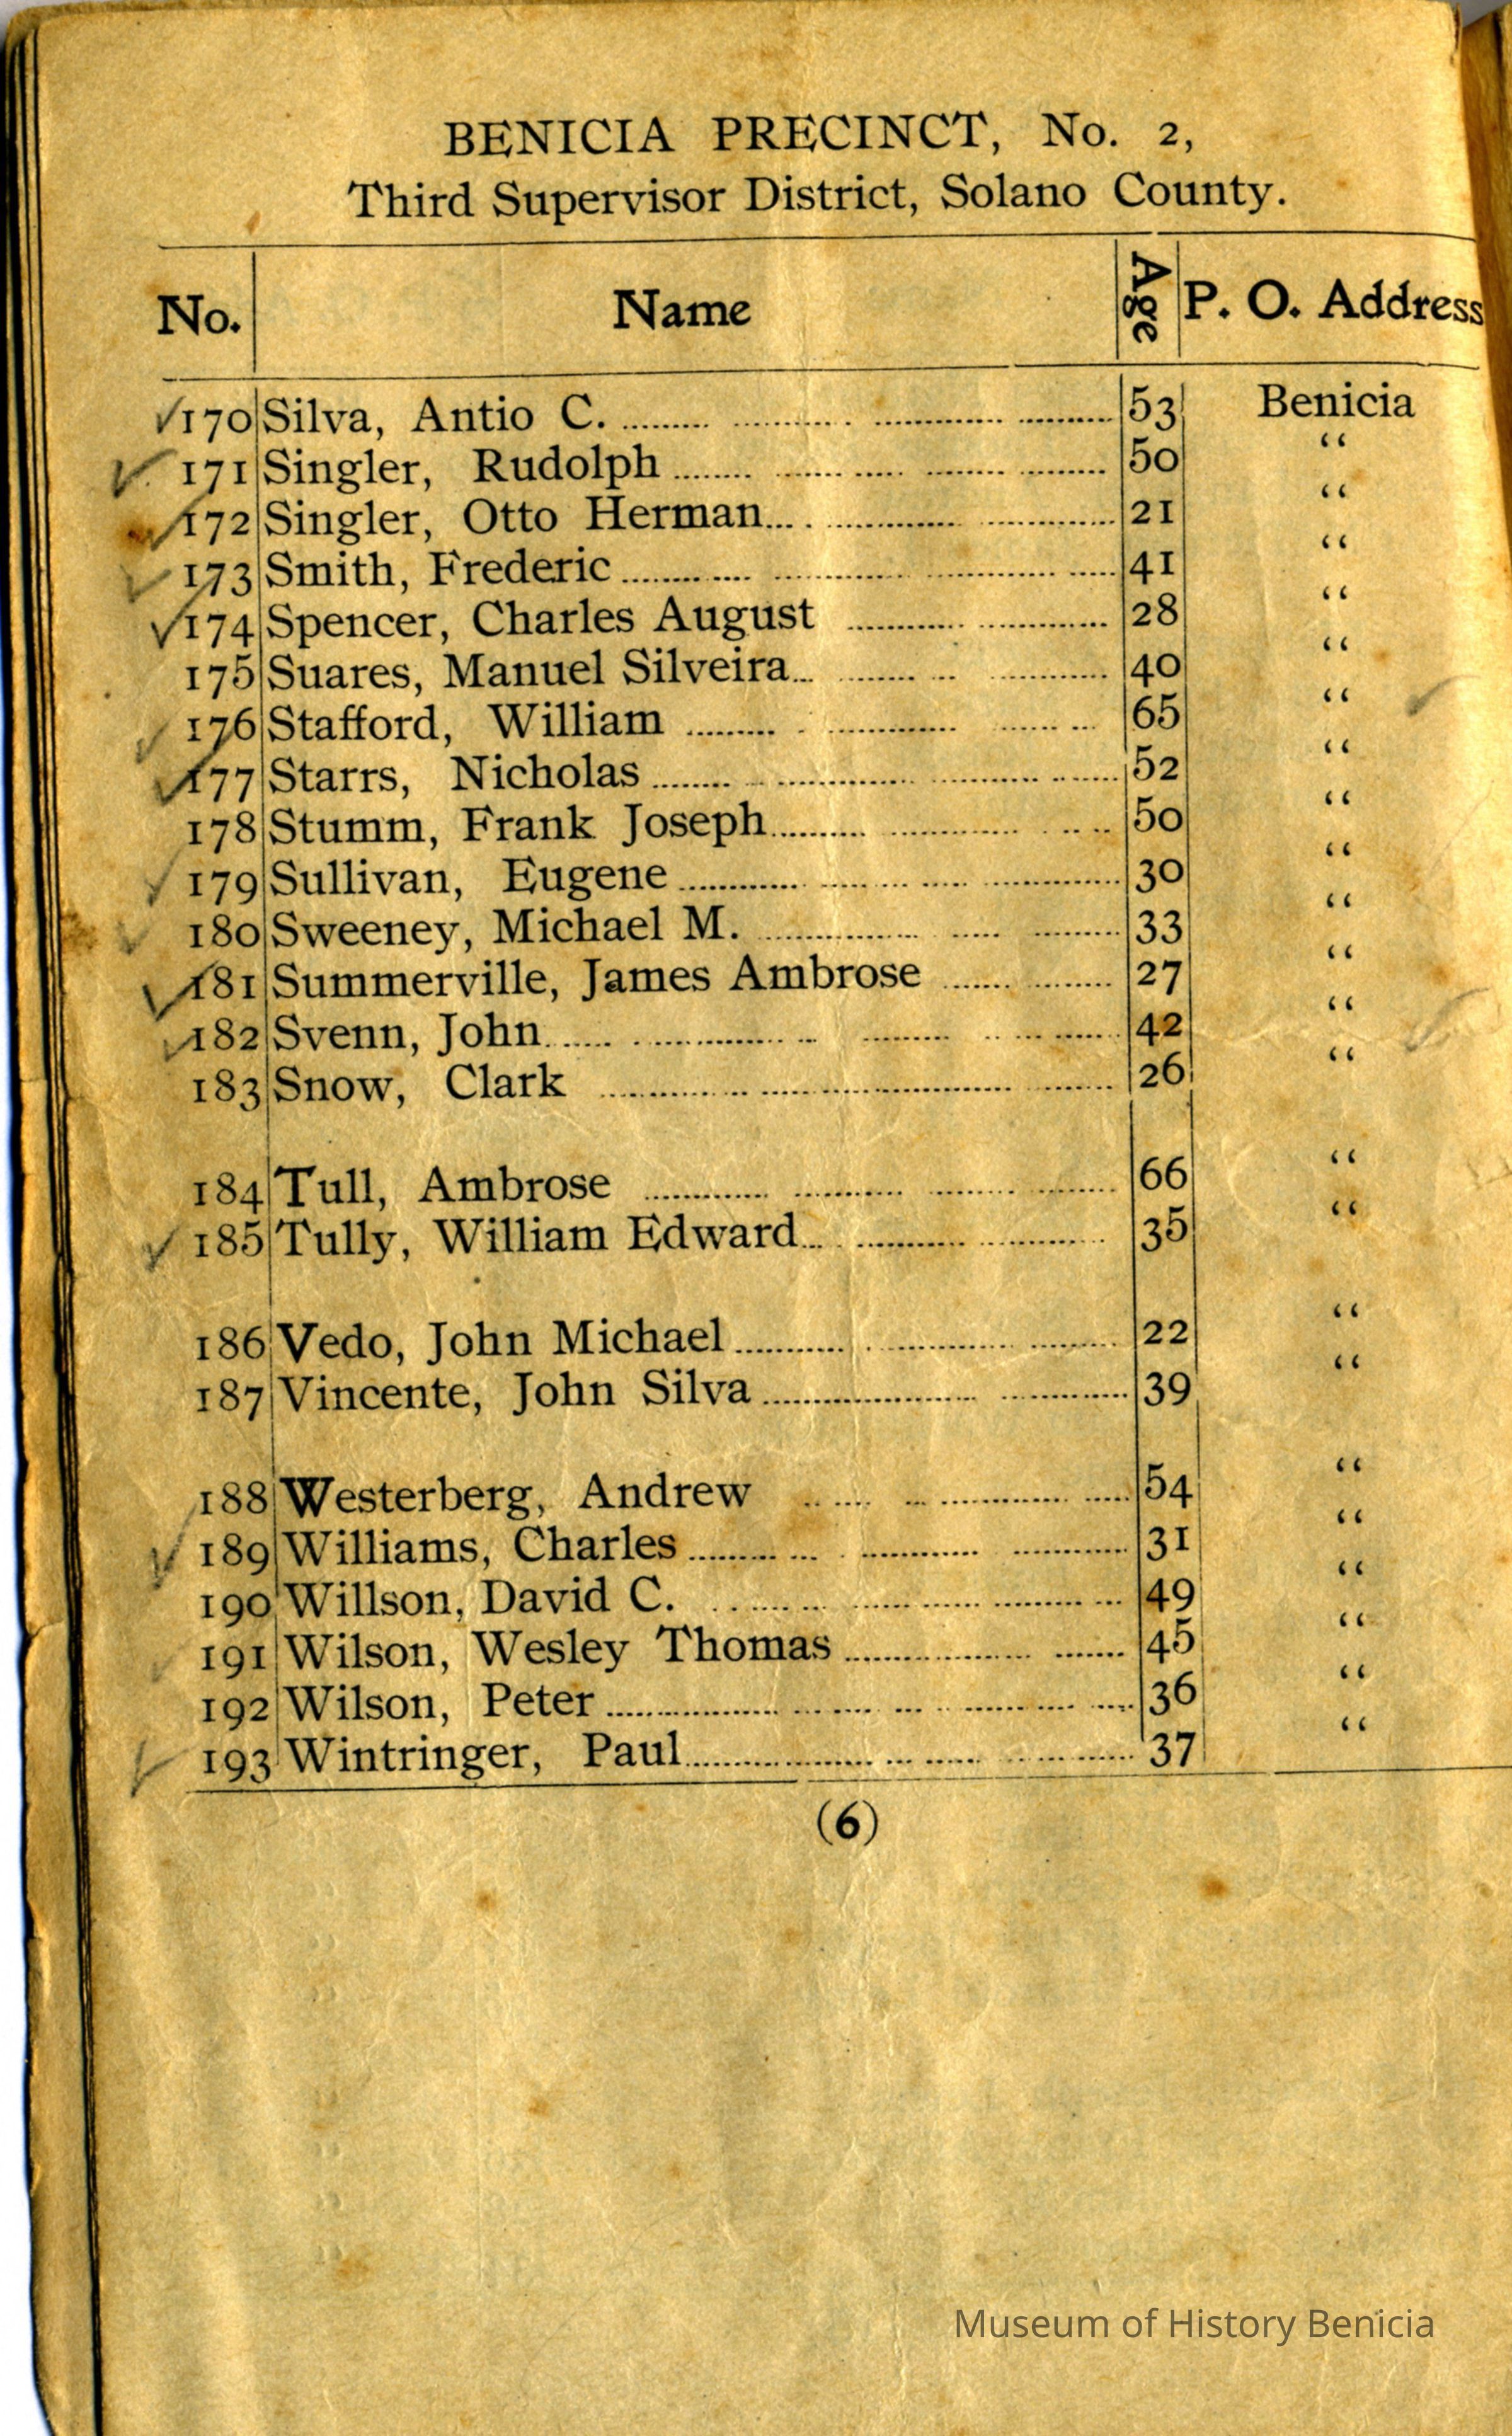 BENICIA PRECINCT, No. 2,
Third Supervisor District, Solano County.
No. Name Age P. O. Address
170 Silva, Antio C. 53 Benicia
171 Singler, Rudolph 50 “
172 Singler, Otto Herman 21 “
173 Smith, Frederic 41 “
174 Spencer, Charles August 28 “
175 Suares, Manuel Silveira 40 “
176 Stafford, William 65 “
177 Starrs, Nicholas 52 “
178 Stumm, Frank Joseph 50 “
179 Sullivan, Eugene 30 “
180 Sweeney, Michael M. 33 “
181 Summerville, James Ambrose 27 “
182 Svenn, John 42 “
183 Snow, Clark 26 “
184 Tull, Ambrose 66 “
185 Tully, William Edward 35 “
186 Vedo, John Michael 22 “
187 Vincente, John Silva 39 “
188 Westerberg, Andrew 54 “
189 Williams, Charles 31 “
190 Willson, David C. 49 “
191 Wilson, Wesley Thomas 45 “
192 Wilson, Peter 36 “
193 Wintringer, Paul 37 “
(6)
Museum of History Benicia